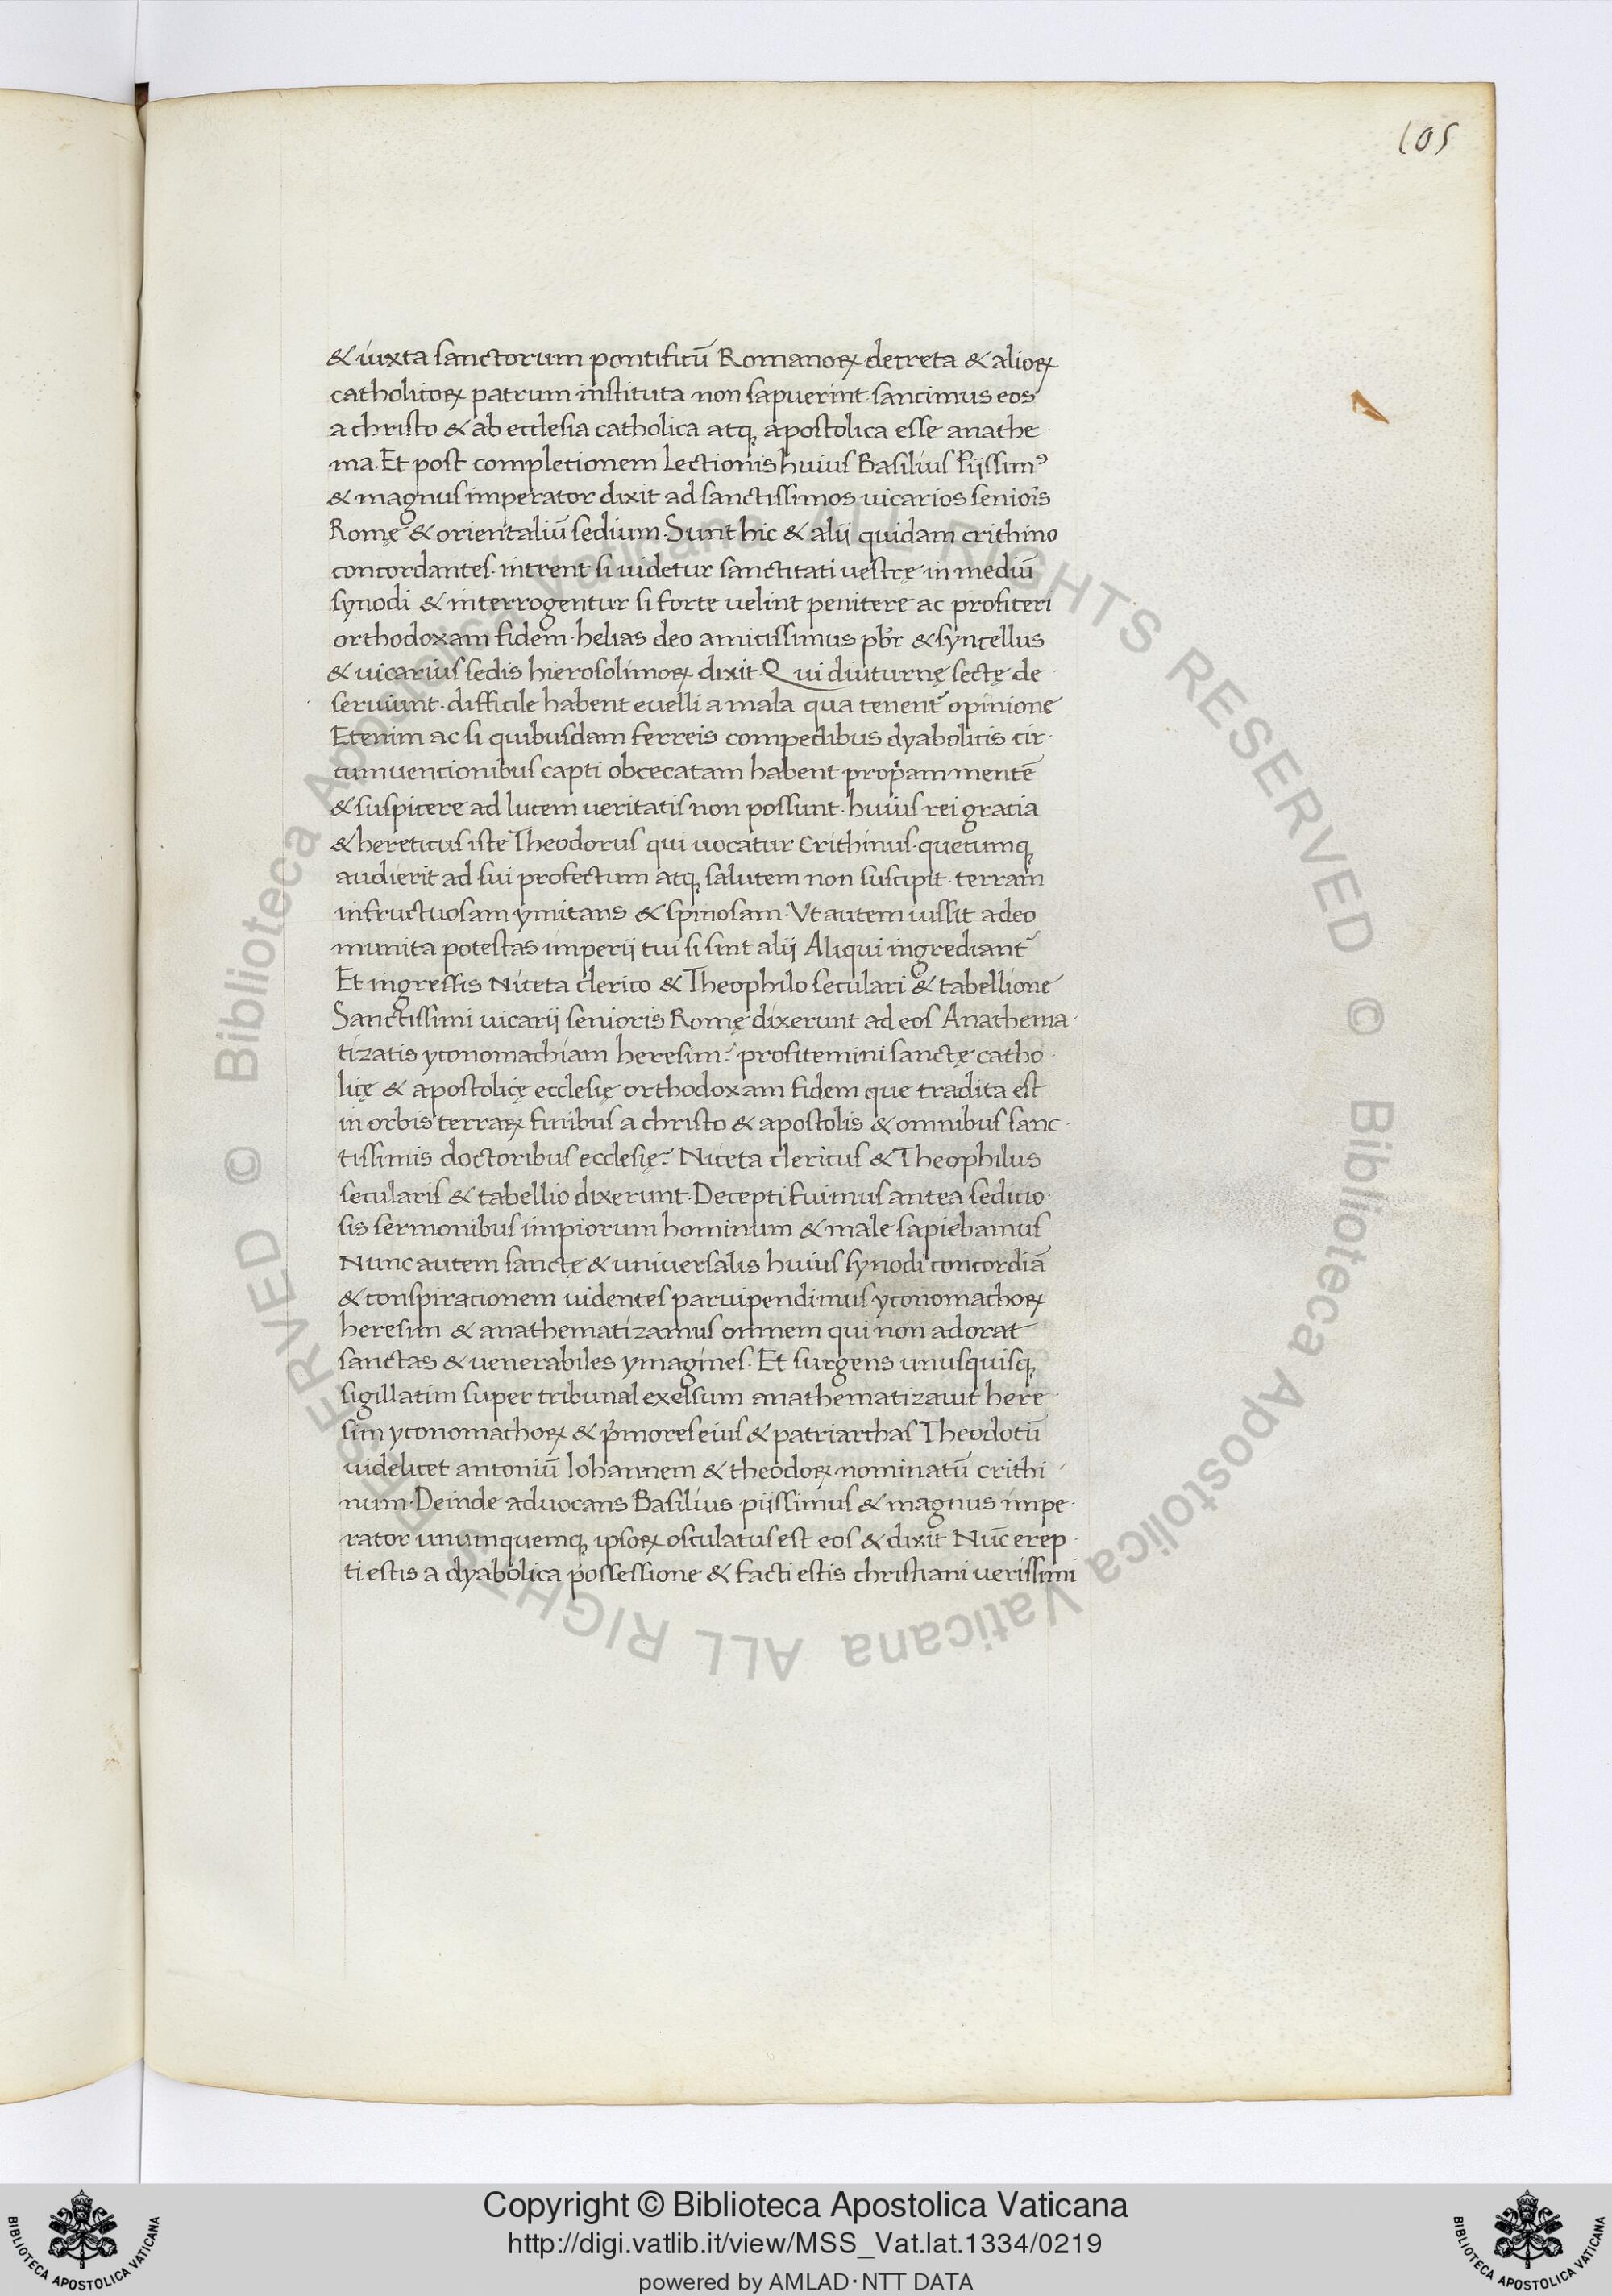 105
& iuxta sanctorum pontificū Romanoꝝ decreta & alioꝝ
catholicoꝝ patrum instituta non sapuerint. sancimus eos
a christo & ab ecclesia catholica atqꝫ apostolica esse anathe
ma. Et post completionem Lectionis huius Basilius Piissimꝰ
& magnus imperator dixit ad sanctissimos uicarios senioris
Romę & orientaliū sedium. Sunt hic & alij quidam crithino
concordantes. intrent si uidetur sanctitati uestrę in mediū
synodi & interrogentur si forte uelint penitere ac profiteri
orthodoxam fidem. helias deo amicissimus pb̄r & syncellus
& uicarius sedis hierosolimoꝝ dixit. Qui diuturnę sectę de
seruiunt. difficile habent euelli a mala qua tenent̄ opinione
Etenim ac si quibusdam ferreis compedibus dyabolicis cir
cumuencionibus capti obcecatam habent prop̄am mentē
& suspicere ad lucem ueritatis non possunt. huius rei gracia
& hereticus iste Theodorus qui uocatur Crithinus. quecumqꝫ
audierit ad sui profectum atqꝫ salutem non suscipit. terram
infructuosam ymitans & spinosam. Vt autem iussit a deo
munita potestas imperij tui si sint alij Aliqui ingrediant̄
Et ingressis Niceta clerico & Theophilo seculari & tabellione
Sanctissimi uicarij senioris Romę dixerunt ad eos Anathema
tizatis yconomachiam heresim? profitemini sanctę catho
licę & apostolicę ecclesię orthodoxam fidem que tradita est
in orbis terraꝝ finibus a christo & apostolis & omnibus sanc
tissimis doctoribus ecclesię? Niceta clericus & Theophilus
secularis & tabellio dixerunt. Decepti fuimus antea sedicio
sis sermonibus impiorum hominum & male sapiebamus
Nunc autem sanctę & uniuersalis huius synodi concordiā
& conspiracionem uidentes paruipendimus yconomachoꝝ
heresim & anathematizamus omnem qui non adorat
sanctas & uenerabiles ymagines. Et surgens unusquisqꝫ
sigillatim super tribunal exelsum anathematizauit here
sim yconomachoꝝ & p̄mores eius & patriarchas Theodotū
uidelicet antoniū Iohannem & theodoꝝ nominatū crithi
num. Deinde aduocans Basilius piissimus & magnus impe
rator unumquemqꝫ ipsoꝝ osculatus est eos & dixit Nūc erep
ti estis a dyabolica possessione & facti estis christiani uerissimi
© Biblioteca Apostolica Vaticana ALL RIGHTS RESERVED © Biblioteca Apostolica Vaticana ALL RIGHTS RESERVED
Copyright © Biblioteca Apostolica Vaticana
http://digi.vatlib.it/view/MSS_Vat.lat.1334/0219
powered by AMLAD·NTT DATA
BIBLIOTECA APOSTOLICA VATICANA
BIBLIOTECA APOSTOLICA VATICANA